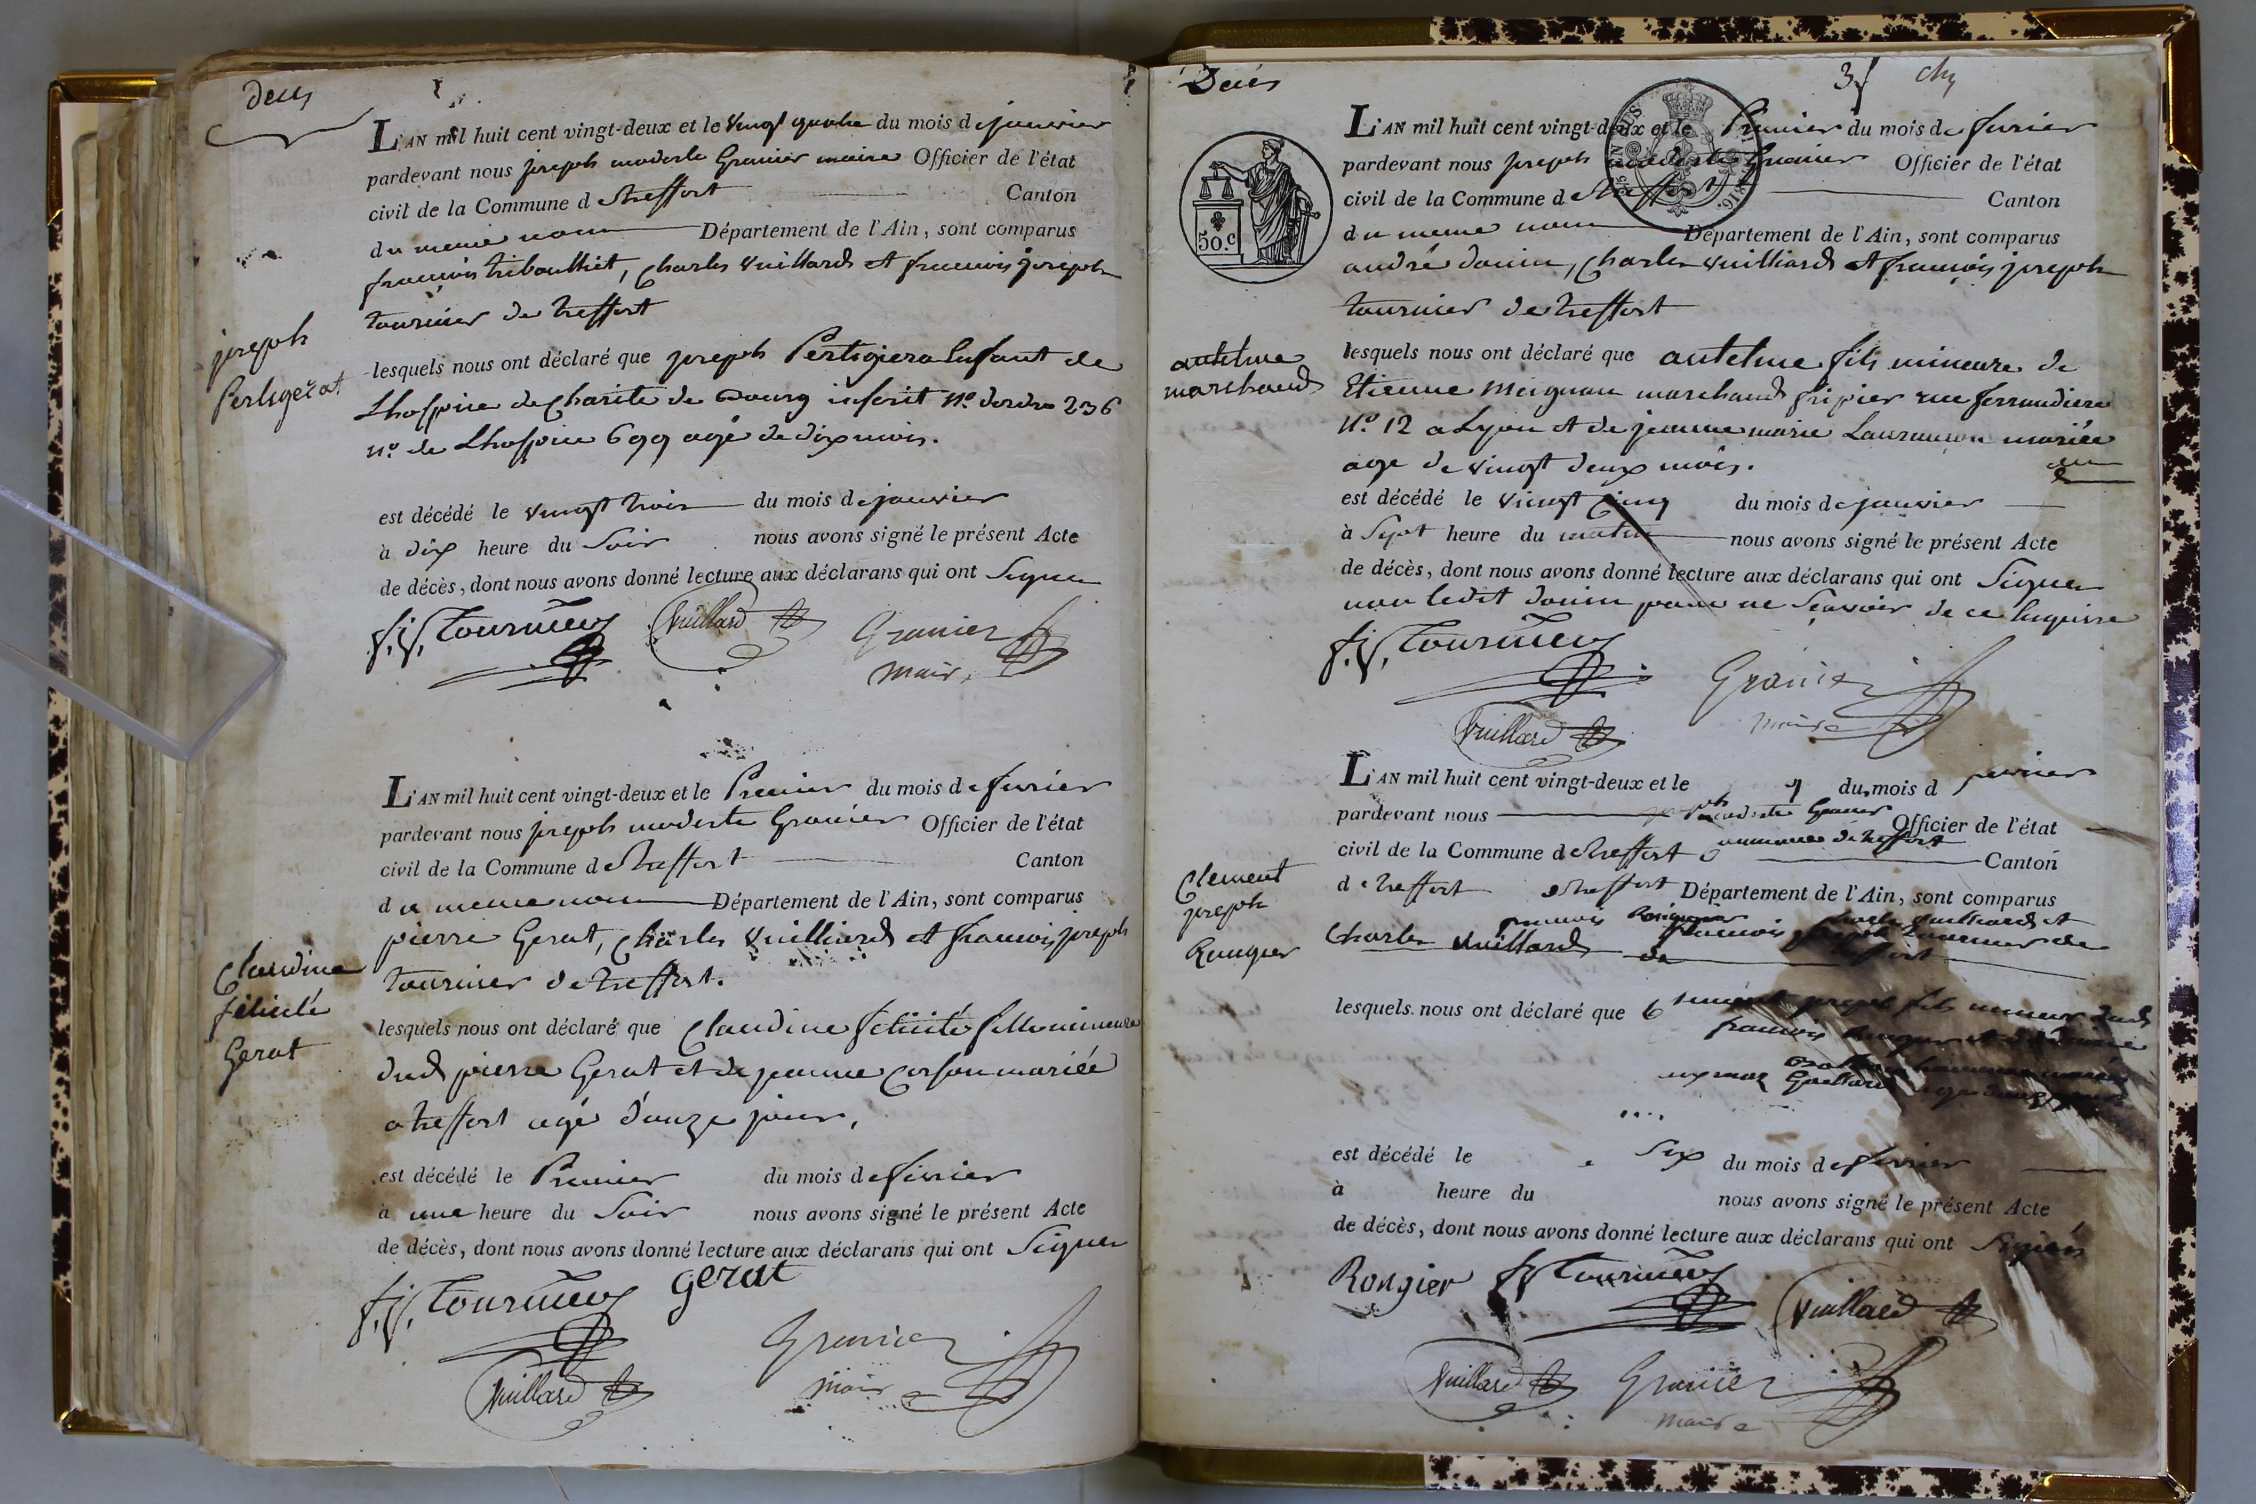 deces
L'AN mil huit cent vingt-deux et le vingt quatre du mois de janvier
pardevant nous joseph modeste Granier maire Officier de l'état
civil de la Commune de treffort Canton
du meme nom Département de l'Ain, sont comparus
francois triboulliet, Charles Vuilliard et francois joseph
tournier de treffort
joseph
Pertigerat
lesquels nous ont déclaré que joseph Pertigiera Enfant de
Lhospice de Charité de Bourg inscrit N.o dordre 236
N.o de Lhospice 699 agé de dix mois.
est décédé le vingt trois du mois de janvier
à dix heure du Soir nous avons signé le présent Acte
de décès, dont nous avons donné lecture aux déclarans qui ont Signer
f.j. tournier Vuillard Granier
maire
L'AN mil huit cent vingt-deux et le Premier du mois de fevrier
pardevant nous joseph modeste Granier Officier de l'état
civil de la Commune de treffort Canton
du meme nom Département de l'Ain, sont comparus
pierre Gerat, Charles Vuilliard et francois joseph
tournier de treffort.
Claudine
félicité
Gerat
lesquels nous ont déclaré que Claudine félicité fille mineure
dud pierre Gerat et de jeanne mariée
a treffort agé d'onze jour,
est décédé le Premier du mois de fevrier
à une heure du Soir nous avons signé le présent Acte
de décès, dont nous avons donné lecture aux déclarans qui ont Signer
f.j. tournier gerat
Granier
Vuillard maire
Décès
L'AN mil huit cent vingt-deux et le Premier du mois de fevrier
pardevant nous joseph modeste Granier Officier de l'état
civil de la Commune de treffort Canton
du meme nom Département de l'Ain, sont comparus
50.c
andré douin, Charles Vuilliard et francois joseph
tournier de treffort
antelme
marchand
lesquels nous ont déclaré que antelme fils mineure de
Etienne Meignan marchand fripier rue ferrandiere
N.o 12 a Lyon et de jeanne marie mariée
age de vingt deux mois.
est décédé le vingt Cinq du mois de janvier
à Sept heure du matin nous avons signé le présent Acte
de décès, dont nous avons donné lecture aux déclarans qui ont Signer
non ledit douin pour ne Scavoir de ce Enquisse
f.j. tournier
Granier
Vuillard maire
L'AN mil huit cent vingt-deux et le du mois d fevrier
pardevant nous joseph modeste Granier Officier de l'état
civil de la Commune de treffort Canton
de treffort Département de l'Ain, sont comparus
Charles Vuillard
Clement
joseph
lesquels nous ont déclaré que
est décédé le Six du mois de fevrier
à heure du nous avons signé le présent Acte
de décès, dont nous avons donné lecture aux déclarans qui ont Signés
Rongier f.j. tournier Vuillard
Vuillard Granier
maire